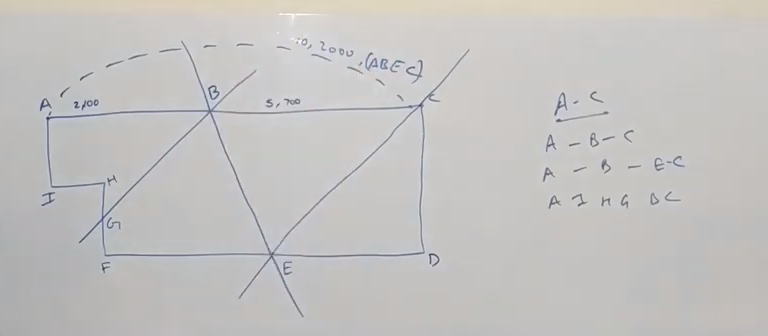 , 2000, (ABEC)
A 2,100 B 5,700 C
I H
G
F E D
A - C
A - B - C
A - B - E-C
A I H G BC